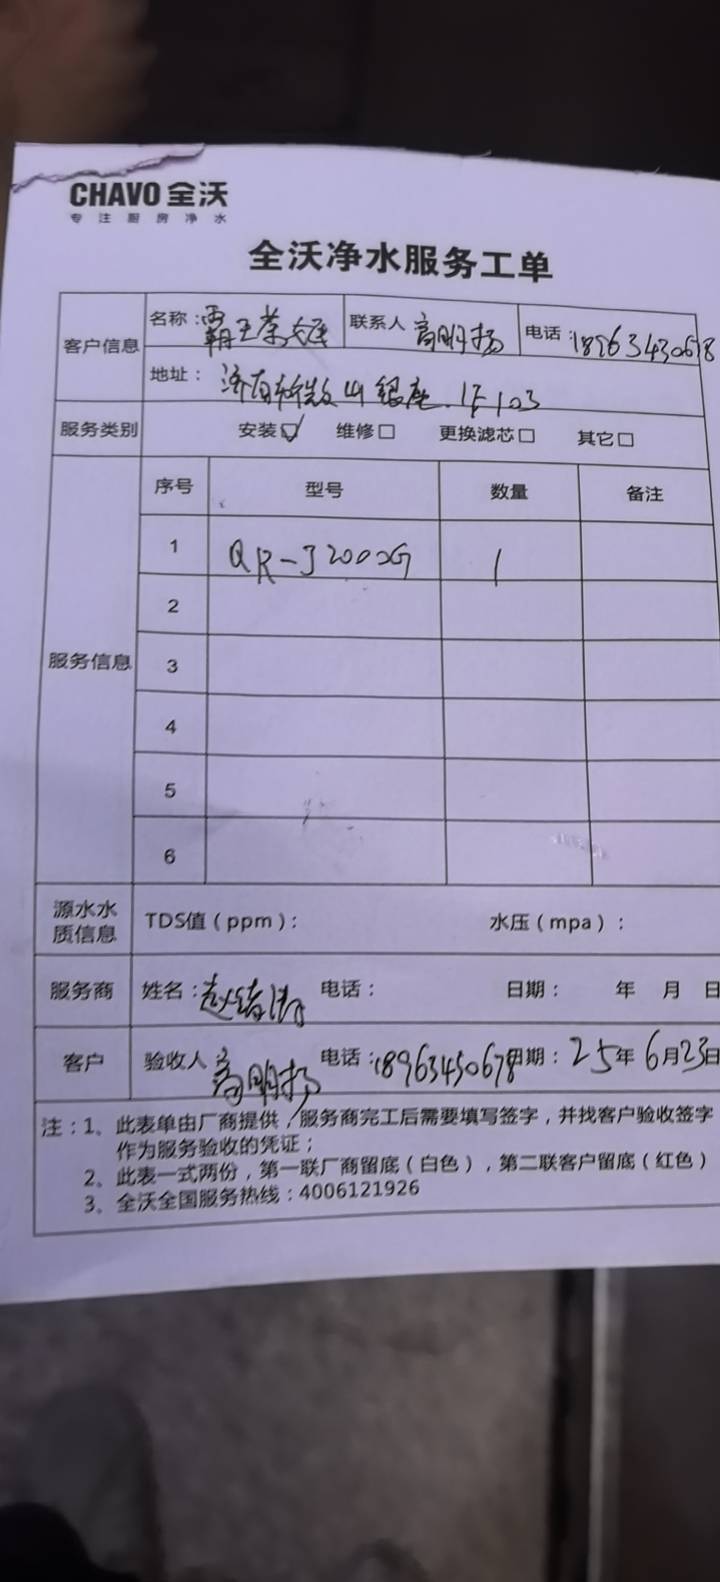 CHAVO 全沃
专注厨房净水
全沃净水服务工单
客户信息
名称：霸王茶姬 联系人 高明扬 电话：18963430678
地址： 济南 微山银座.1F103
服务类别 安装☑ 维修□ 更换滤芯□ 其它□
服务信息
序号 型号 数量 备注
1 QR-J2000G 1
2
3
4
5
6
源水水质信息 TDS值（ppm）： 水压（mpa）：
服务商 姓名：赵 电话： 日期： 年 月 日
客户 验收人 高明扬 电话：18963430678 日期：25年6月23日
注：1、此表单由厂商提供，服务商完工后需要填写签字，并找客户验收签字
作为服务验收的凭证；
2、此表一式两份，第一联厂商留底（白色），第二联客户留底（红色）
3、全沃全国服务热线：4006121926